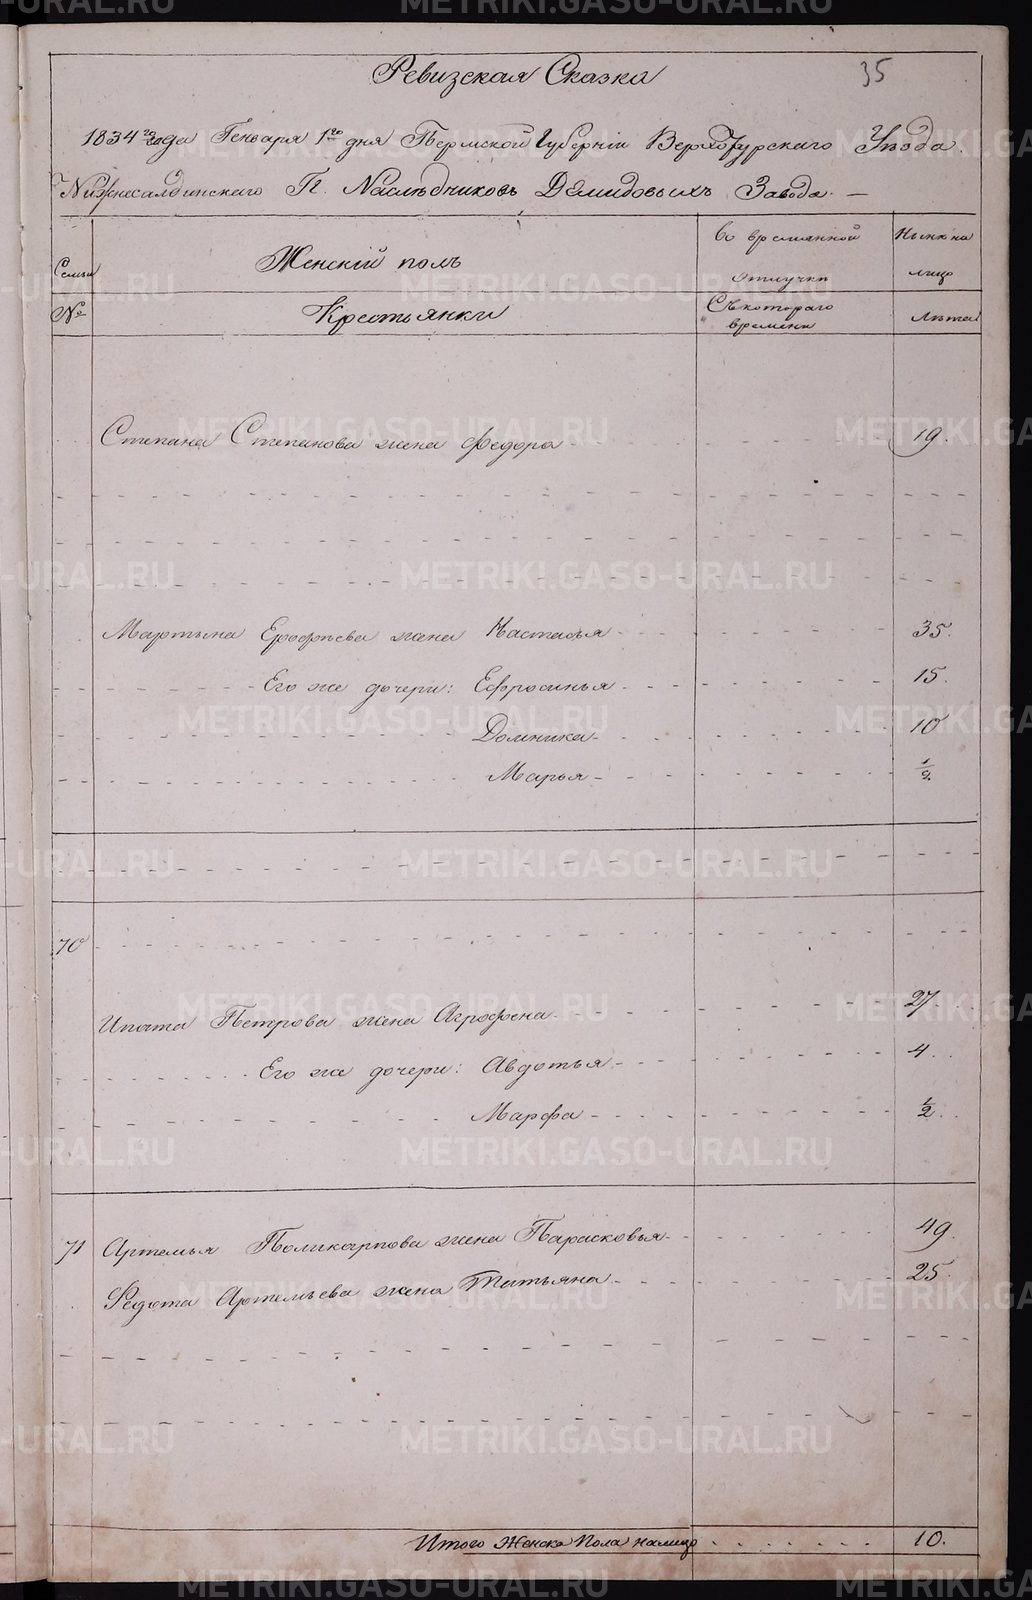 35
Ревизская Сказка
1834го года Генваря 1го дня Пермской Губерніи Верхотурскаго Уѣзда
Нижнесалдинскаго Гг. Наслѣдниковъ Демидовыхъ Завода. —
Семьи
Женскій полъ
во временной отлучки
Нынѣ на лицо
№
Крестьянки
Съ котораго времени
Лѣта
Степана Степанова жена Федора 19.
Мартына Ерофѣева жена Настасья 35.
Его же дочери: Ефросинья 15.
Домника 10
Марья ½
70
Ипата Петрова жена Агрофена 27.
Его же дочери: Авдотья 4.
Марфа ½.
71 Артемья Поликарпова жена Парасковья 49.
Федота Артемьева жена Татьяна 25.
Итого Женска Пола налицо 10.
METRIKI.GASO-URAL.RU